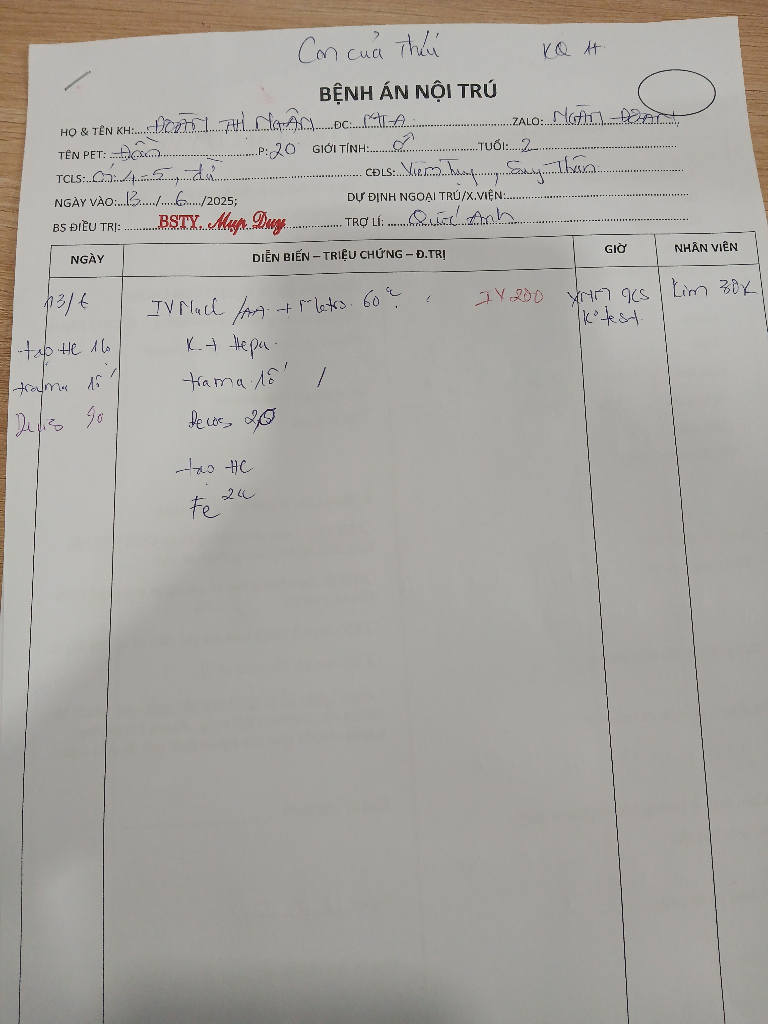 Con của Thúi KQ
BỆNH ÁN NỘI TRÚ
HỌ & TÊN KH: ĐOÀN TH NGÂN ĐC: MT-A ZALO: NGÂN ĐOAN
TÊN PET: P: 20 GIỚI TÍNH: ♂ TUỔI: 2
TCLS: ói 4-5, CĐLS: Viêm Tụy, Suy Thận
NGÀY VÀO: 13 / 6 /2025; DỰ ĐỊNH NGOẠI TRÚ/X.VIỆN:
BS ĐIỀU TRỊ: BSTY. Mup Duy TRỢ LÍ: Quốc Anh
NGÀY DIỄN BIẾN – TRIỆU CHỨNG – Đ.TRỊ GIỜ NHÂN VIÊN
13/6 IV Nacl /AA + Metro 60 IV 200 Kim 30K
K° test
tạo HC 16 K + Hepa
trama 15' trama 15' /
90 20
tạo HC
Fe